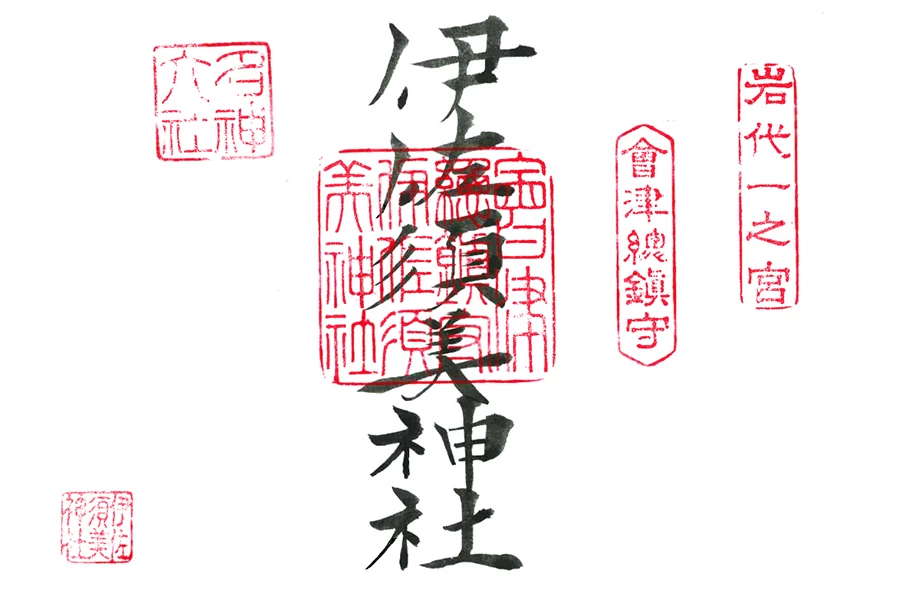 岩代一之宮
會津總鎮守
伊佐須美神社
會津
總鎮守
伊佐須
美神社
名神
大社
伊佐
須美
神社